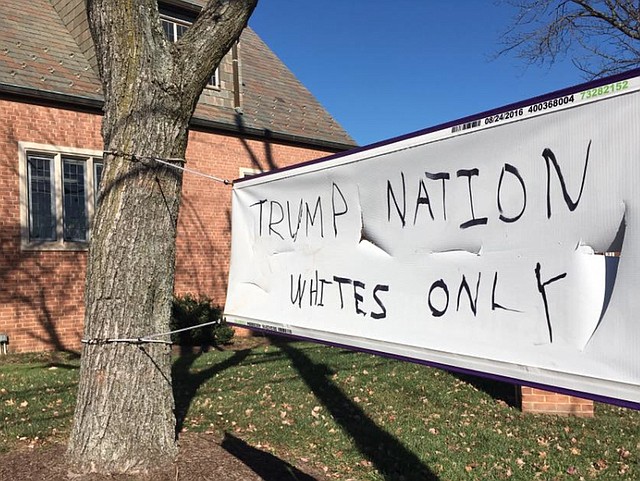 08/24/2016 400368004 73282152
TRUMP NATION
WHITES ONLY